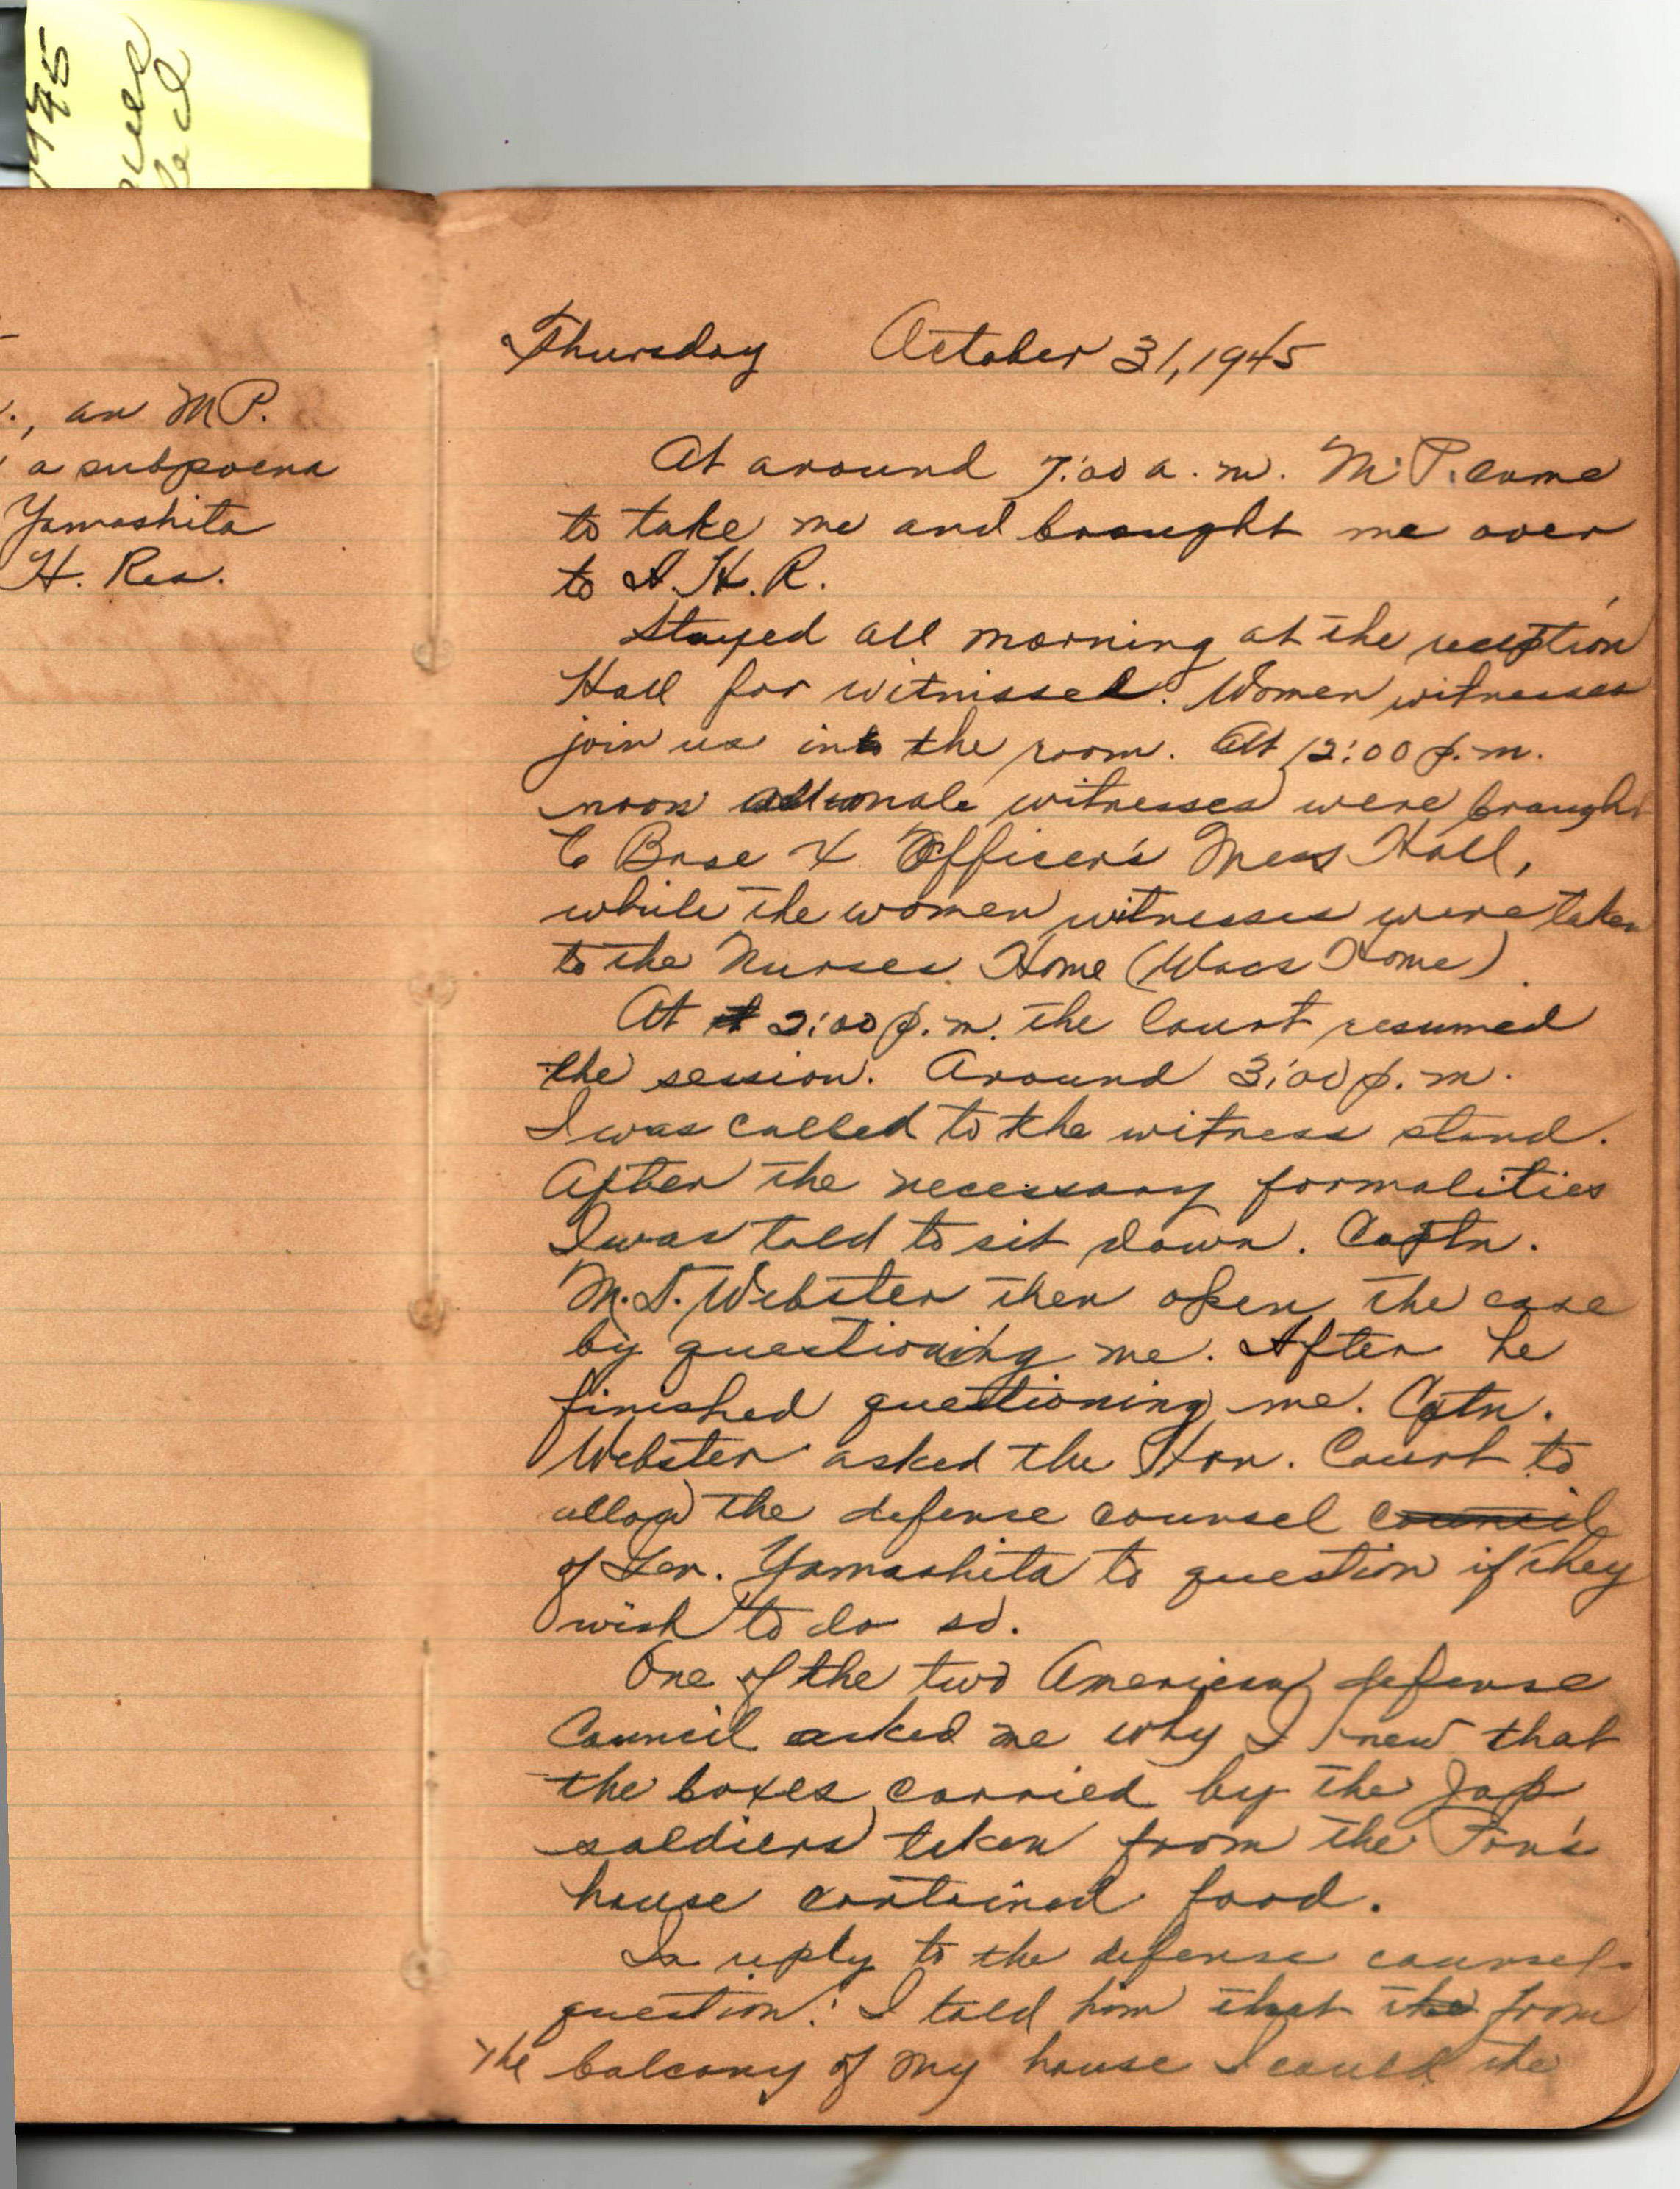 1945
., an M P.
a subpoena
Yamashita
H. Res.
Thursday October 31, 1945
At around 7:00 a. m. M. P. came
to take me and brought me over
to A. H. R.
Stayed all morning at the reception
Hall for witnisses. Women witnesses
join us into the room. At 12:00 p. m.
noon all male witnesses were brought
to Base X Officer's Mess Hall,
while the women witnesses were taken
to the Nurses Home (Wacs Home)
At 2:00 p. m. the Court resumed
the session. Around 3:00 p. m.
I was called to the witness stand.
After the necessary formalities
I was told to sit down. Captn.
M. D. Webster then open the case
by questioning me. After he
finished questioning me. Cptn.
Webster asked the Hon. Court to
allow the defense counsel council
of Gen. Yamashita to question if they
wish to do so.
One of the two American defense
Council asked me why I knew that
the boxes carried by the Jap
soldiers taken from the Pons
house contained food.
In reply to the defense counsels
question: I told him that the from
the balcony of my house I could the